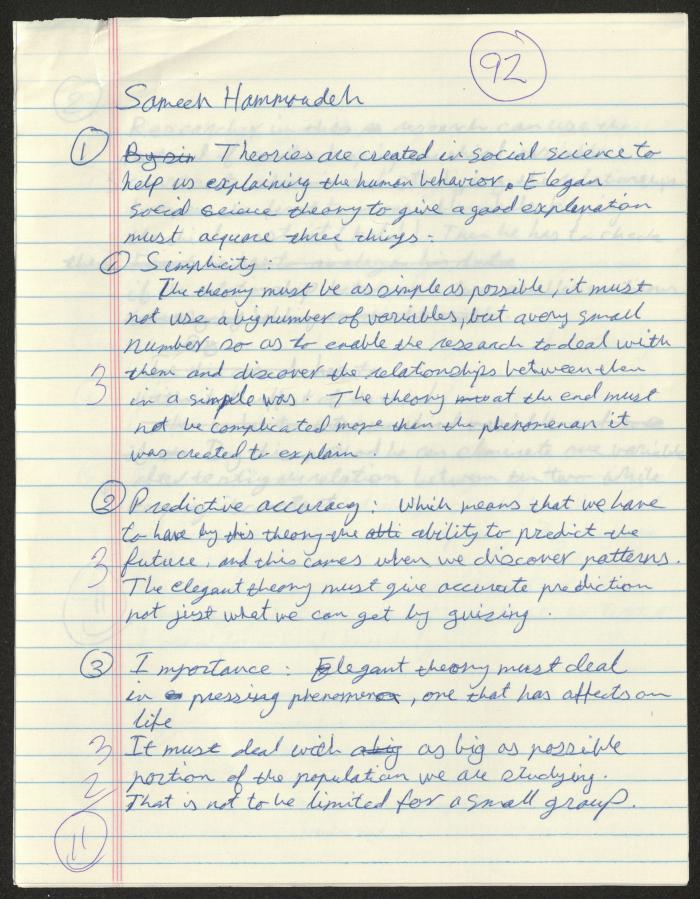 92
Sameeh Hammoudeh
① By sin Theories are created in social science to
help us explaining the human behavior. Elegan
social science theory to give a good explenation
must acquare three things :
① Simplicity :
The theory must be as simple as possible, it must
not use a big number of variables, but a very small
number so as to enable the research to deal with
3 them and discover the relationships between then
in a simple was. The theory at the end must
not be complicated more than the phenomenan it
was created to explain.
② Predictive accuracy : Which means that we have
to have by this theory the abli ability to predict the
3 future, and this comes when we discover patterns.
The elegant theory must give accurate prediction
not just what we can get by guizing.
③ Importance : Elegant theory must deal
in pressing phenomena, one that has affects on
life
3 It must deal with a big as big as possible
2 portion of the population we are studying.
That is not to be limited for a small group.
11